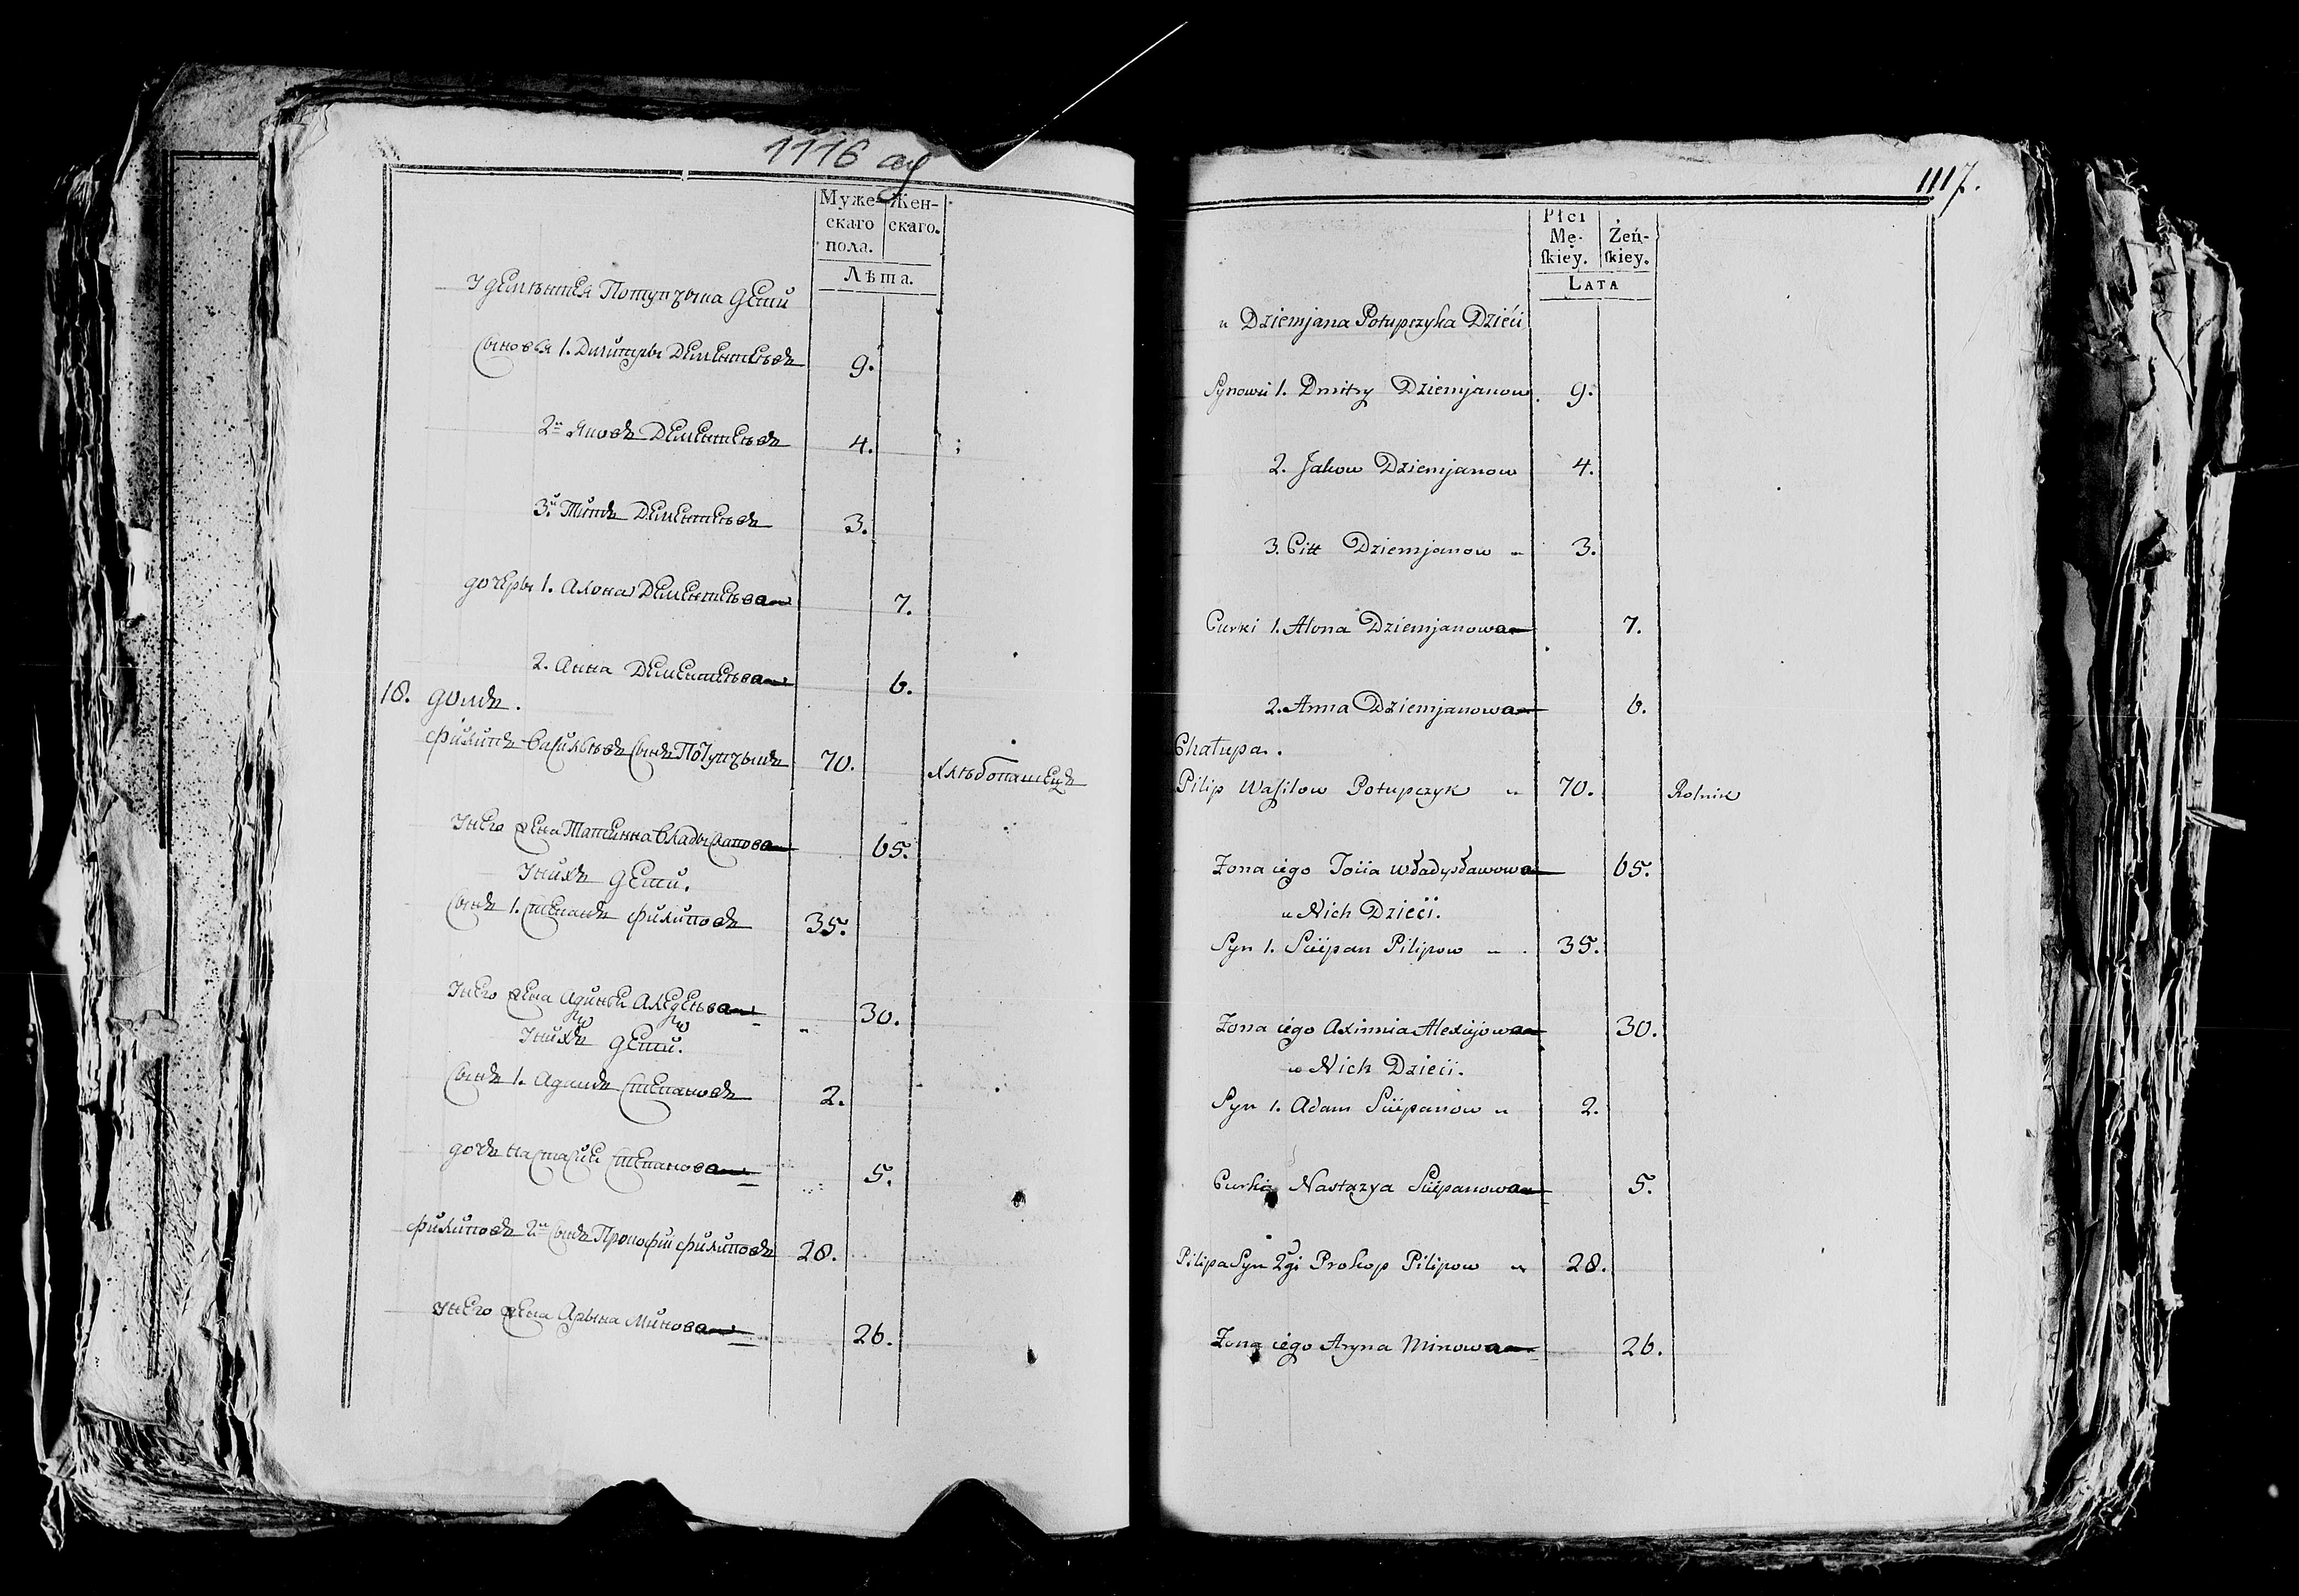 1116 об
Муже- Жен-
скаго скаго.
пола.
Лѣта.
У дементея Потупчыка дети
сыновья 1. Дмитры Дементьевъ 9.
2й Яковъ Дементьевъ 4.
3й Титъ Дементьевъ 3.
дочеры 1. Алона Дементьева 7.
2. Анна Дементьева 6.
18. домъ.
Филипъ Васильевъ сынъ Потупчыкъ 70. Хлѣбопашецъ
У него жена Татиана 65.
У нихъ дети.
сынъ 1. степанъ Филиповъ 35.
У него жена 30.
У нихъ дети.
сынъ 1. Адамъ степановъ 2.
дочъ Настасии степанова 5.
Филиповъ 2й сынъ Прокофии Филиповъ 28.
У него жена Арына Минова 26.
1117.
Płci
Mę- Żeń-
ſkiey. ſkiey.
LATA
u Dziemjana Potupczyka Dzieći
Synowie 1. Dmitry Dziemjanow 9.
2. Jakow Dziemjanow 4.
3. Citt Dziemjanow 3.
Curki 1. Alona Dziemjanowa 7.
2. Anna Dziemjanowa 6.
Chałupa.
Pilip Waſilow Potupczyk 70. Rolnik
Żona iego Władysławowa 65.
u Nich Dzieći.
Syn 1. Sciepan Pilipow 35.
Żona iego Axinnia Alexiejowa 30.
u Nich Dzieci.
Syn 1. Adam Sciepanow 2.
Curka Nastazya Sciepanowa 5.
Pilipa Syn 2gi Prokop Pilipow 28.
Żona iego Aryna Minowa 26.